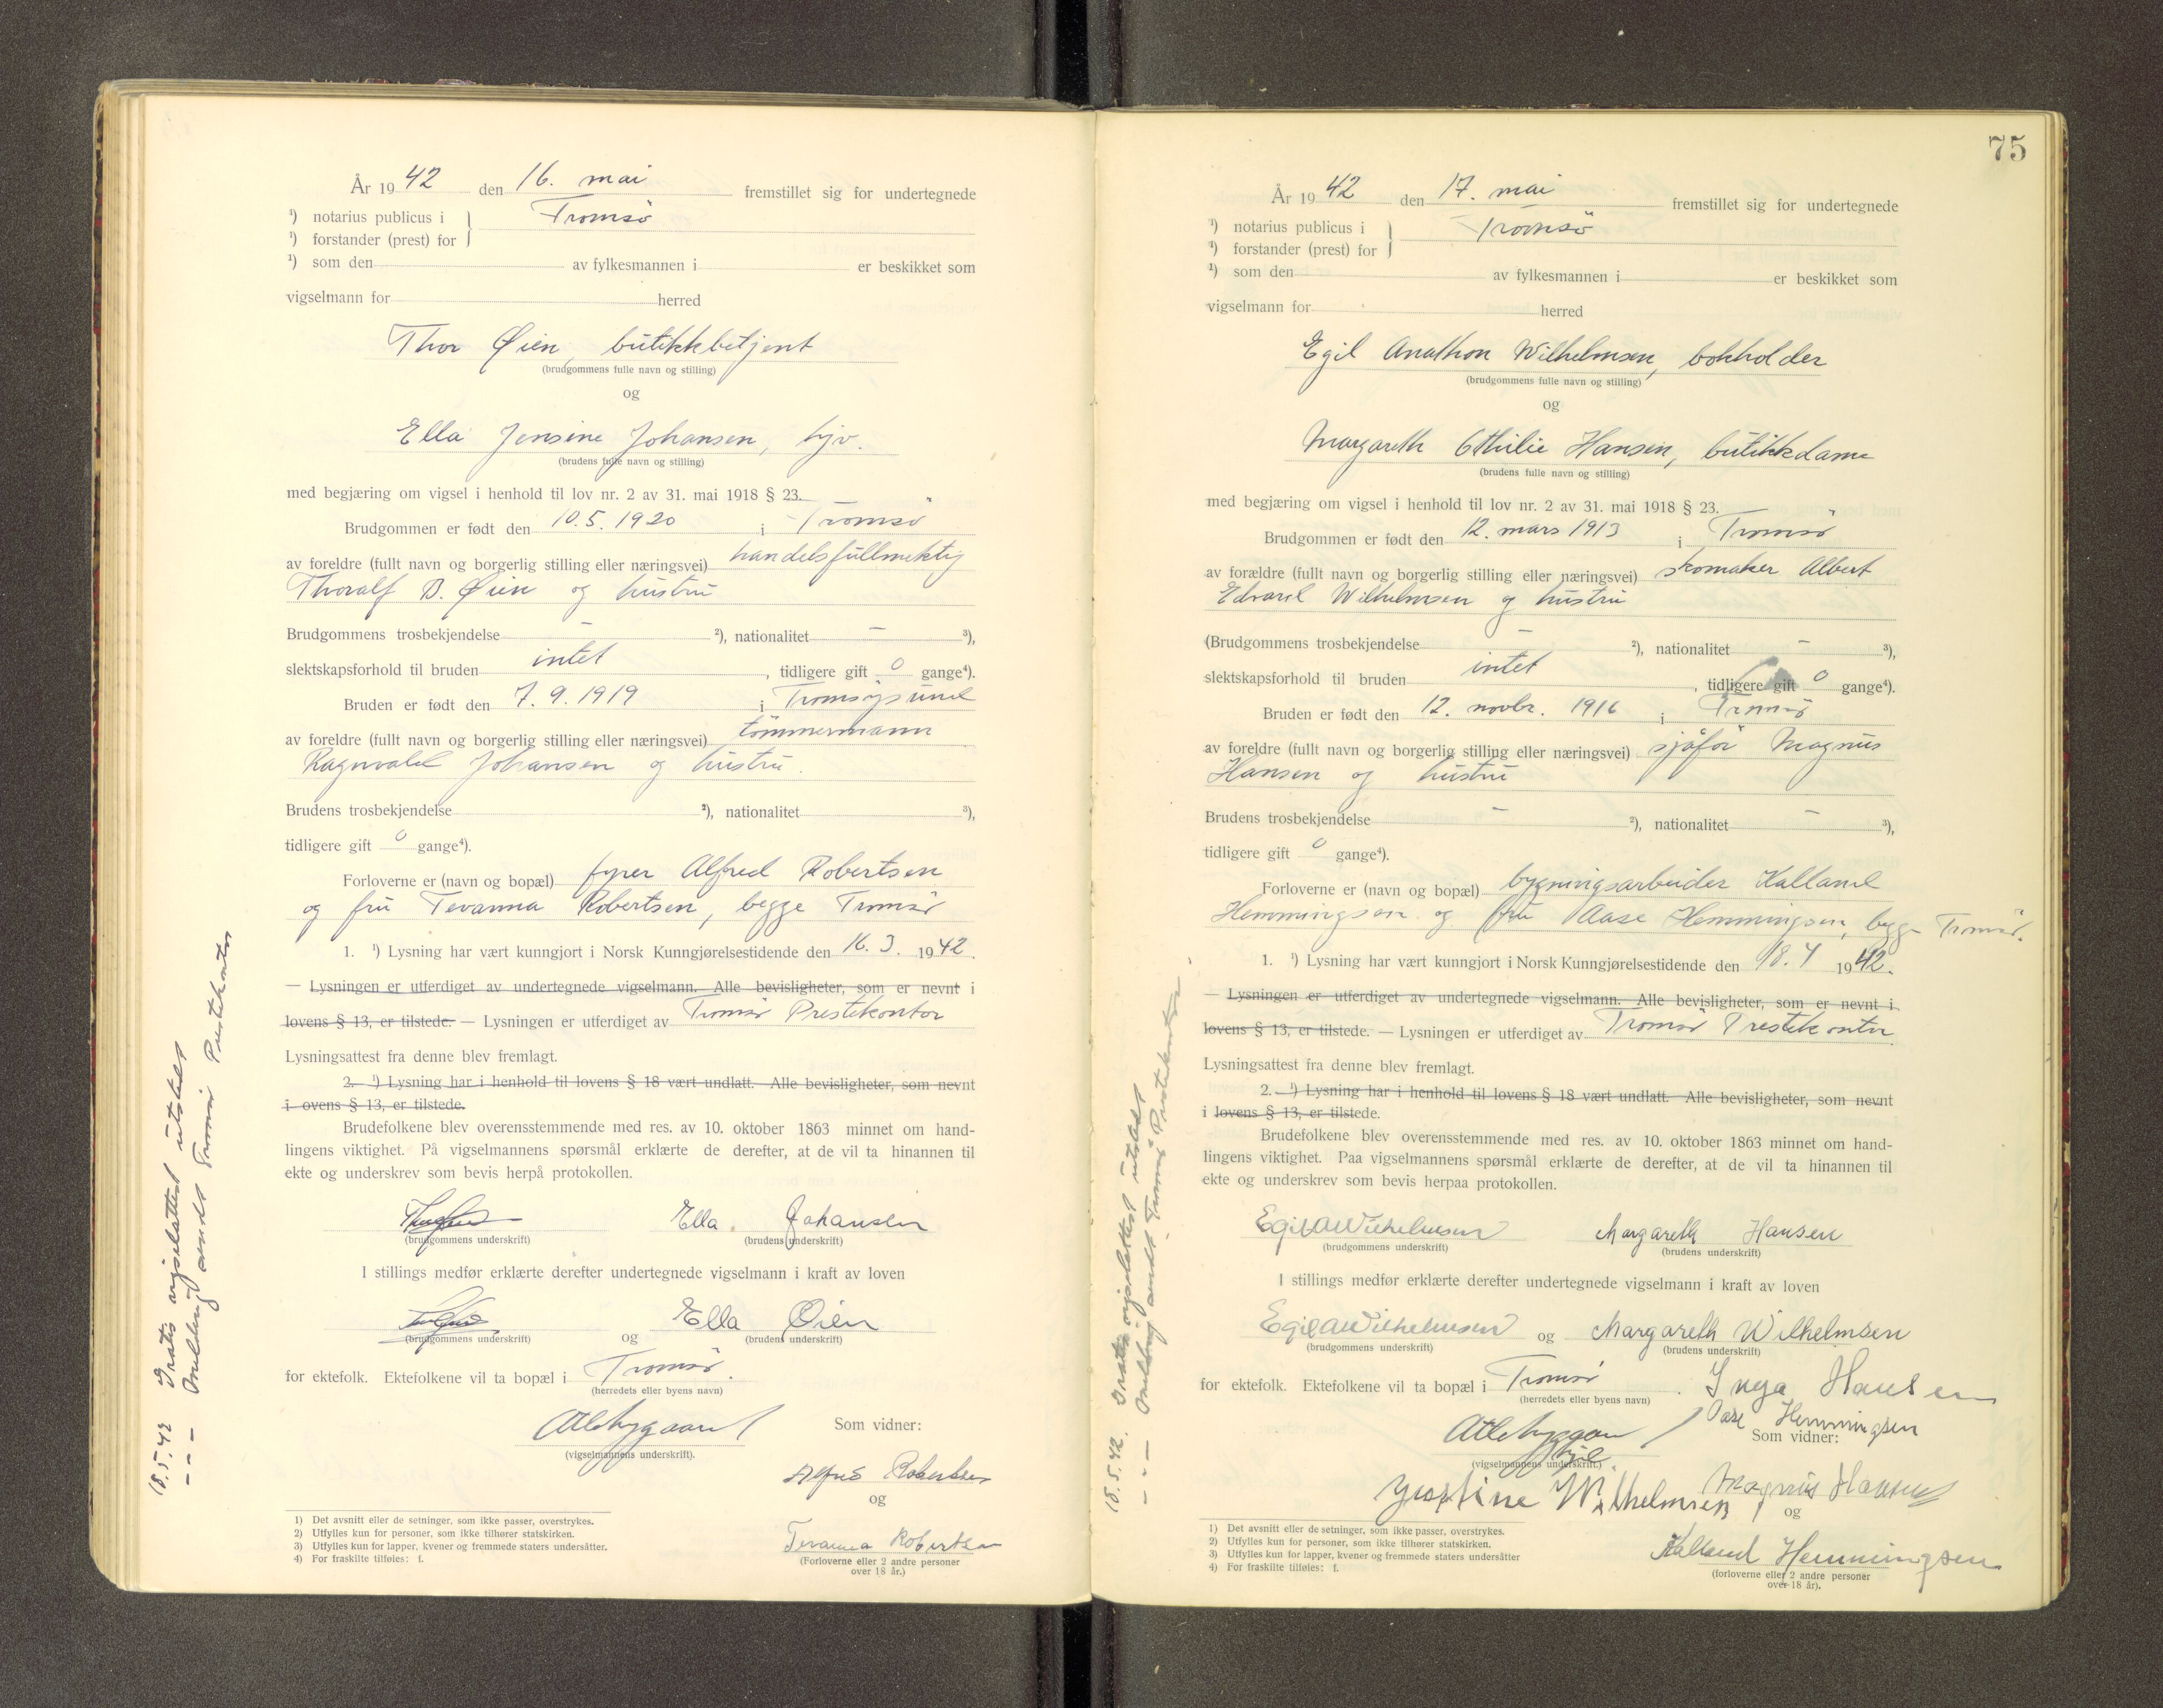 År 1942 den 16. mai fremstillet sig for undertegnede
¹) notarius publicus i } Tromsö
¹) forstander (prest) for
¹) som den av fylkesmannen i er beskikket som
vigselmann for herred
Thor Øien, butikkbetjent
(brudgommens fulle navn og stilling)
og
Ella Jensine Johansen, hjv.
(brudens fulle navn og stilling)
med begjæring om vigsel i henhold til lov nr. 2 av 31. mai 1918 § 23.
Brudgommen er født den 10.5.1920 i Tromsö
av foreldre (fullt navn og borgerlig stilling eller næringsvei) handelsfullmektig
Thoralf B. Øien og hustru
Brudgommens trosbekjendelse – ²), nationalitet – ³),
slektskapsforhold til bruden intet, tidligere gift 0 gange⁴).
Bruden er født den 7.9.1919 i Tromsöysund
av foreldre (fullt navn og borgerlig stilling eller næringsvei) tömmermann
Ragnvald Johansen og hustru.
Brudens trosbekjendelse ²), nationalitet ³),
tidligere gift 0 gange⁴).
Forloverne er (navn og bopæl) fyrer Alfred Robertsen
og fru Tevanna Robertsen, begge Tromsö
1. ¹) Lysning har vært kunngjort i Norsk Kunngjørelsestidende den 16.3. 1942.
— Lysningen er utferdiget av undertegnede vigselmann. Alle bevisligheter, som er nevnt i
lovens § 13, er tilstede. — Lysningen er utferdiget av Tromsö Prestekontor
Lysningsattest fra denne blev fremlagt.
2. ¹) Lysning har i henhold til lovens § 18 vært undlatt. Alle bevisligheter, som nevnt
i ovens § 13, er tilstede.
Brudefolkene blev overensstemmende med res. av 10. oktober 1863 minnet om hand-
lingens viktighet. På vigselmannens spørsmål erklærte de derefter, at de vil ta hinannen til
ekte og underskrev som bevis herpå protokollen.
Ella Johansen
(brudgommens underskrift) (brudens underskrift)
I stillings medfør erklærte derefter undertegnede vigselmann i kraft av loven
og Ella Øien
(brudgommens underskrift) (brudens underskrift)
for ektefolk. Ektefolkene vil ta bopæl i Tromsö.
(herredets eller byens navn)
Som vidner:
(vigselmannens underskrift).
Alfred Robertsen
og
Tevanna Robertsen
(Forloverne eller 2 andre personer
over 18 år.)
1) Det avsnitt eller de setninger, som ikke passer, overstrykes.
2) Utfylles kun for personer, som ikke tilhører statskirken.
3) Utfylles kun for lapper, kvener og fremmede staters undersåtter.
4) For fraskilte tilføies: f.
18.5.42 Gratis vigselattest utstedt
– " – Melding sendt Tromsö Prestekontor
75
År 1942 den 17. mai fremstillet sig for undertegnede
¹) notarius publicus i } Tromsö
¹) forstander (prest) for
¹) som den av fylkesmannen i er beskikket som
vigselmann for herred
Egil Anathon Wilhelmsen, bokholder
(brudgommens fulle navn og stilling)
og
Margareth Othilie Hansen, butikkdame
(brudens fulle navn og stilling)
med begjæring om vigsel i henhold til lov nr. 2 av 31. mai 1918 § 23.
Brudgommen er født den 12. mars 1913 i Tromsö
av forældre (fullt navn og borgerlig stilling eller næringsvei) skomaker Albert
Edvard Wilhelmsen og hustru
(Brudgommens trosbekjendelse – ²), nationalitet – ³),
slektskapsforhold til bruden intet, tidligere gift 0 gange⁴).
Bruden er født den 12. novbr. 1916 i Tromsö
av foreldre (fullt navn og borgerlig stilling eller næringsvei) sjåför Magnus
Hansen og hustru
Brudens trosbekjendelse – ²), nationalitet – ³),
tidligere gift 0 gange⁴).
Forloverne er (navn og bopæl) bygningsarbeider Halland
Hemmingsen og fru Aase Hemmingsen, begge Tromsö.
1. ¹) Lysning har vært kunngjort i Norsk Kunngjørelsestidende den 18.4 1942.
— Lysningen er utferdiget av undertegnede vigselmann. Alle bevisligheter, som er nevnt i
lovens § 13, er tilstede. — Lysningen er utferdiget av Tromsö Prestekontor
Lysningsattest fra denne blev fremlagt.
2. ¹) Lysning har i henhold til lovens § 18 vært undlatt. Alle bevisligheter, som nevnt
i lovens § 13, er tilstede.
Brudefolkene blev overensstemmende med res. av 10. oktober 1863 minnet om hand-
lingens viktighet. Paa vigselmannens spørsmål erklærte de derefter, at de vil ta hinannen til
ekte og underskrev som bevis herpaa protokollen.
Egil A Wilhelmsen Margareth Hansen
(brudgommens underskrift) (brudens underskrift)
I stillings medfør erklærte derefter undertegnede vigselmann i kraft av loven
Egil A Wilhelmsen og Margareth Wilhelmsen
(brudgommens underskrift) (brudens underskrift)
for ektefolk. Ektefolkene vil ta bopæl i Tromsö. Inga Hansen
(herredets eller byens navn)
Aase Hemmingsen
Som vidner:
(vigselmannens underskrift.)
Justine Wilhelmsen Magnus Hansen
og
Halland Hemmingsen
(forloverne eller 2 andre personer
over 18 år).
1) Det avsnitt eller de setninger, som ikke passer, overstrykes.
2) Utfylles kun for personer, som ikke tilhører statskirken.
3) Utfylles kun for lapper, kvener og fremmede staters undersåtter
4) For fraskilte tilføies: f.
18.5.42. Gratis vigselattest utstedt
– " – Melding sendt Tromsö Prestekontor